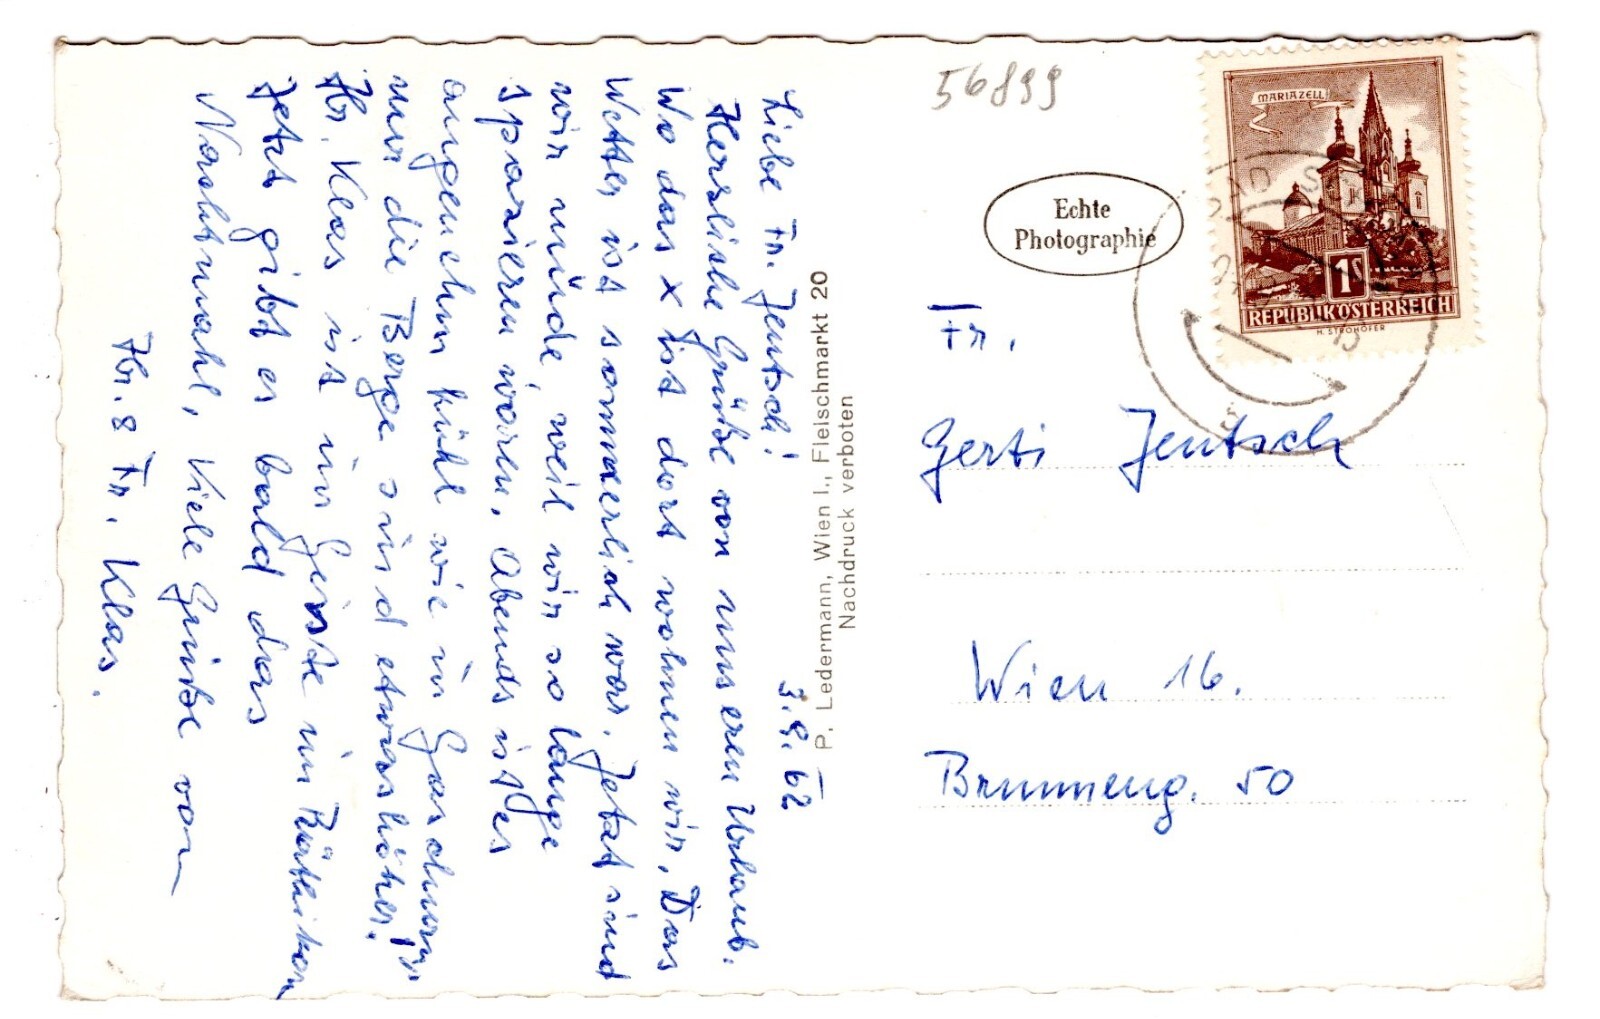 3.9.62
Liebe Fr. Jentsch!
Herzliche Grüße von unseren Urlaub.
Wo das x ist dort wohnen wir. Das
Wetter ist sommerlich war. Jetzt sind
wir müde, weil wir so lange
spazieren waren, Abends ist es
angenehm kühl wie in Gaschurn,
nur die Berge sind etwas höher.
Hr. Klas ist im Geiste im Rätikon
Jetzt gibt es bald das
Nachtmahl, Viele Grüße von
Hr. & Fr. Klas.
P. Ledermann, Wien I., Fleischmarkt 20
Nachdruck verboten
56899
Echte
Photographie
MARIAZELL
1S
REPUBLIK ÖSTERREICH
H. STROHOFER
Fr.
Gerti Jentsch
Wien 16.
Brunneng. 50